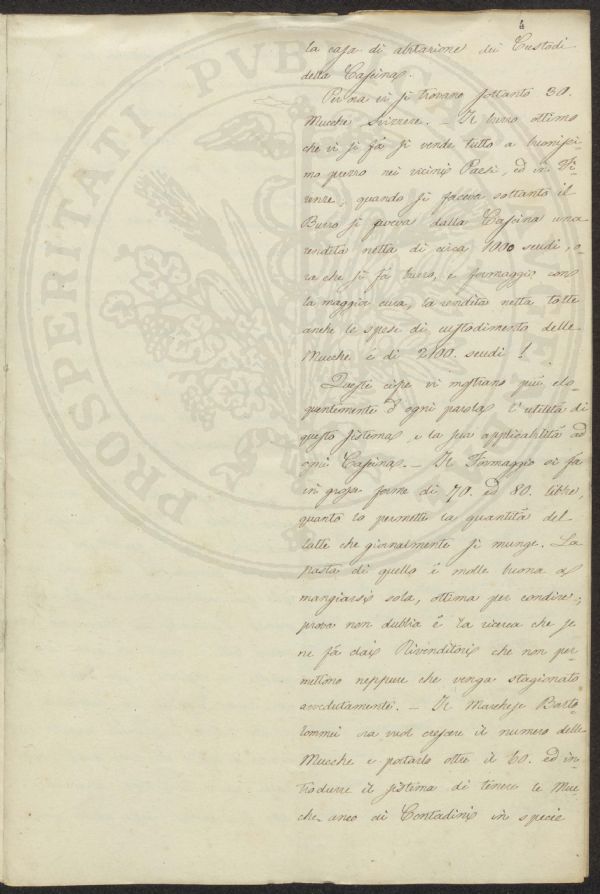 4
la casa di abitazione dei Custodi
della Cascina.
Per ora vi si trovano soltanto 30.
Mucche Svizzere. — Il burro ottimo
che vi si fà si vende tutto a buonissi-
mo prezzo nei vicini Paesi, ed in Fi-
renze; quando si faceva soltanto il
Burro si aveva dalla Cascina una
rendita netta di circa 1000 scudi, o-
ra che si fà burro, e formaggio con
la maggior cura, la rendita netta tolte
anche le spese di custodimento delle
Mucche è di 2100. scudi!
Queste cifre vi mostrano più elo-
quentemente d'ogni parola l'utilità di
questo sistema, e la sua applicabilità ad
ogni Cascina. — Il Formaggio si fà
in grosse forme di 70. ed 80. libre,
quanto lo permette la quantità del
latte che giornalmente si munge. La
pasta di quello è molle buona a
mangiarsi sola, ottima per condire;
prova non dubbia è la ricerca che se
ne fà dai Rivenditori che non per-
mettono neppure che venga stagionato
avvedutamente. — Il Marchese Barto-
lommei ora vuol crescere il numero delle
Mucche e portarlo oltre il 60. ed in-
trodurre il sistema di tenere le Muc-
che anco ai Contadini in specie
PROSPERITATI PVBLICAE